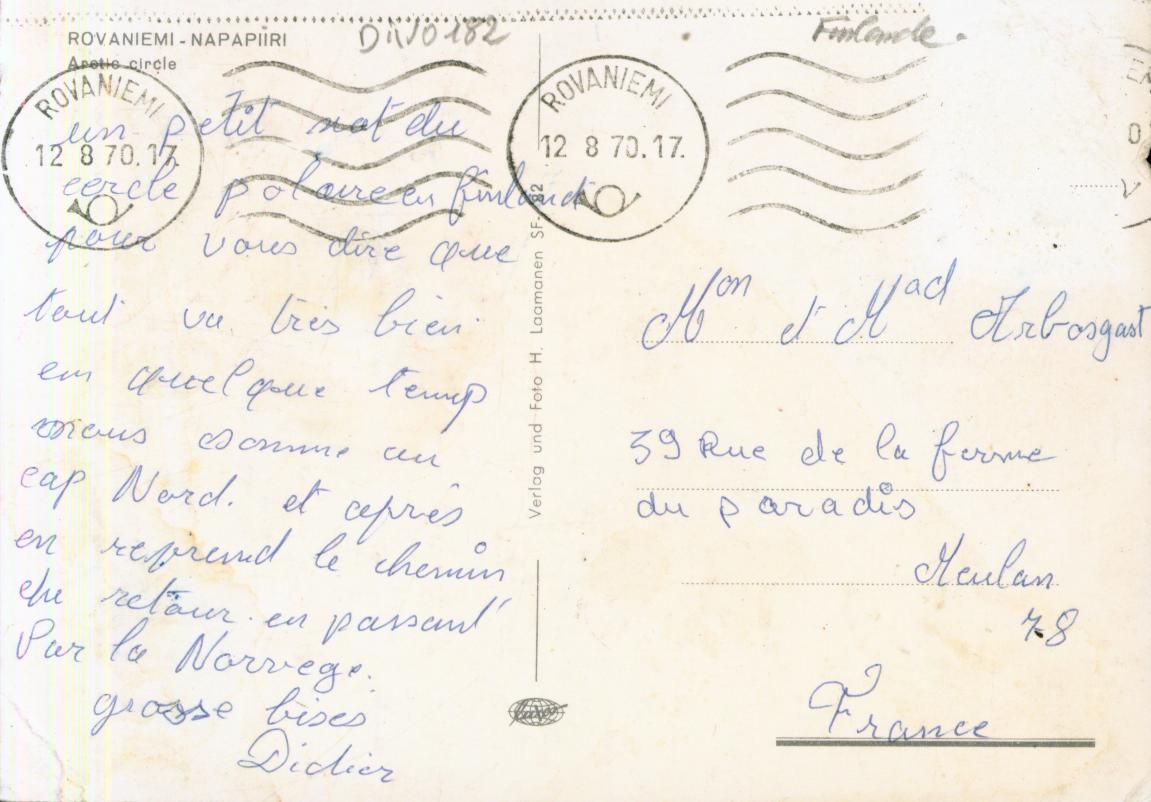 ROVANIEMI - NAPAPIIRI
Arctic circle
Finlande.
ROVANIEMI
12 8 70.17.
ROVANIEMI
12 8 70.17.
un petit mot du
cercle polaire en finland
pour vous dire que
tout va très bien
en quelque temp
nous somme au
cap Nord. et après
en reprend le chemin
du retour en passant
Par la Norvege.
grosse bises
Didier
Verlag und Foto H. Laamanen SF
Mon et Mad Arbosgast
39 Rue de la ferme
du paradis
Meulan
78
France